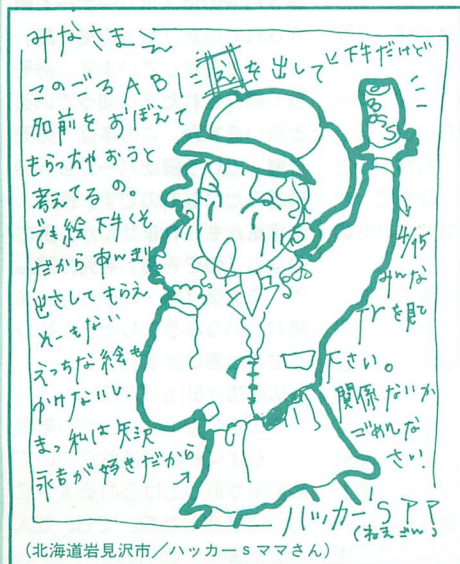 みなさまえ
このごろABに絵を出して
←下手だけど
名前をおぼえて
もらっちゃおうと
考えてるの。
でも絵下手くそ
だからまんが
出さしてもらえ
そーもない
えっちな絵も
かけないし、
まっ私は矢沢
永吉が好きだから
→4/15
みんな
TVを見て
下さい。
関係ないか
ごめんな
さい!
ハッカー'Sママ
(ねえさん)
(北海道岩見沢市/ハッカーsママさん)